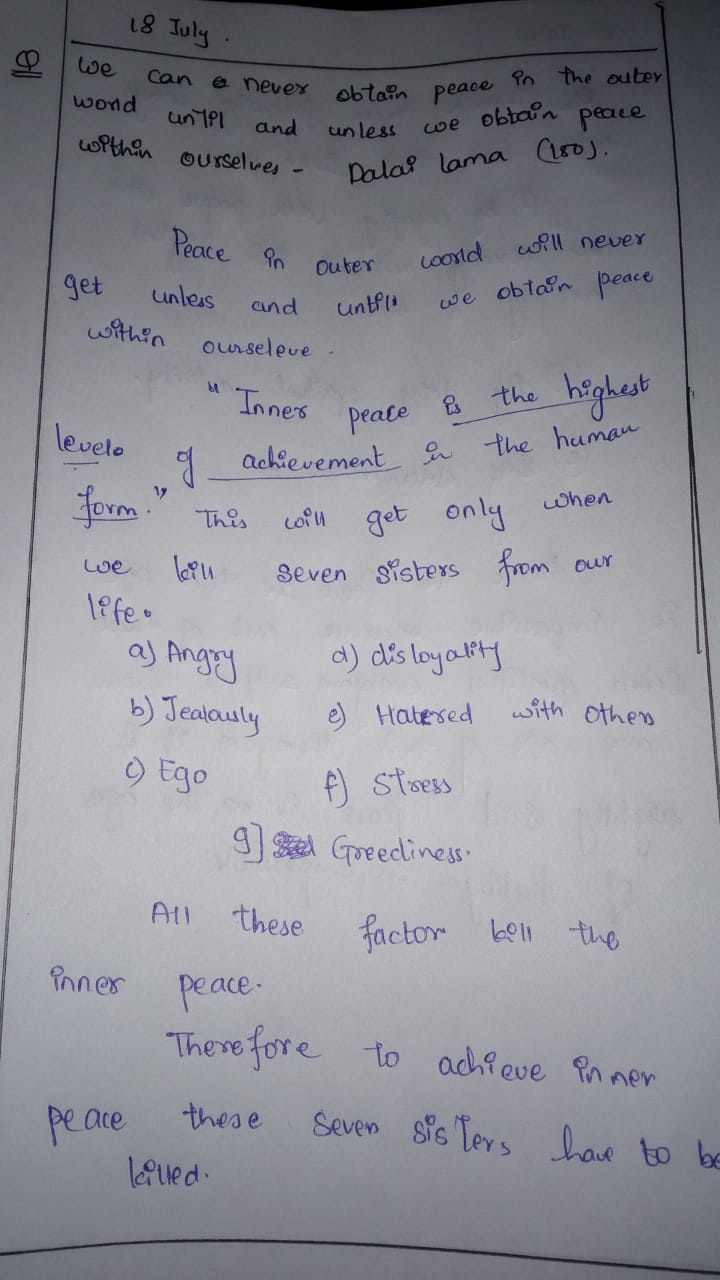 18 July.
Q We can never obtain peace in the outer
world until and unless we obtain peace
within ourselves - Dalai lama (150).
Peace in outer world will never
get unless and until we obtain peace
within ourseleve.
"Inner peace is the highest
levels of achievement in the human
form." This will get only when
we kill seven sisters from our
life.
a) Angry d) disloyality
b) Jealously e) Hatered with others
c) Ego f) Stress
g] Greediness.
All these factor kill the
inner peace.
Therefore to achieve inner
peace these seven sisters have to be
killed.